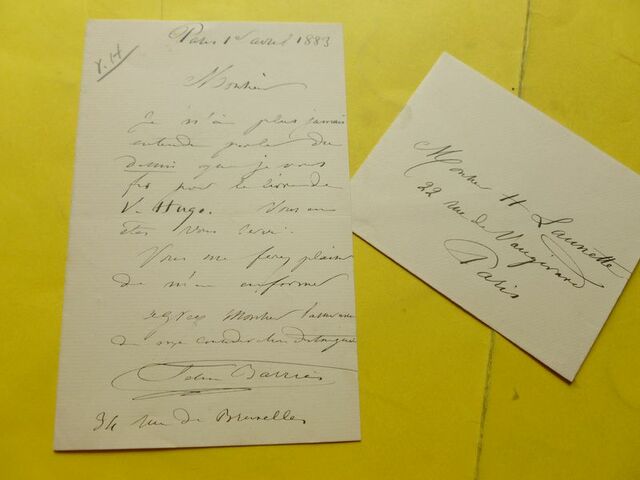 V. H
Paris 1er avril 1883
Monsieur
Je n'ai plus jamais
entendu parler du
dessin que je vous
fis pour le livre de
V. Hugo. Vous en
êtes vous servi.
Vous me ferez plaisir
de m'en informer
Agréez Monsieur l'assurance
de ma considération distinguée
Félix Barrias
34 rue de Bruxelles
Monsieur H Launette
22 rue de Vaugirard
Paris